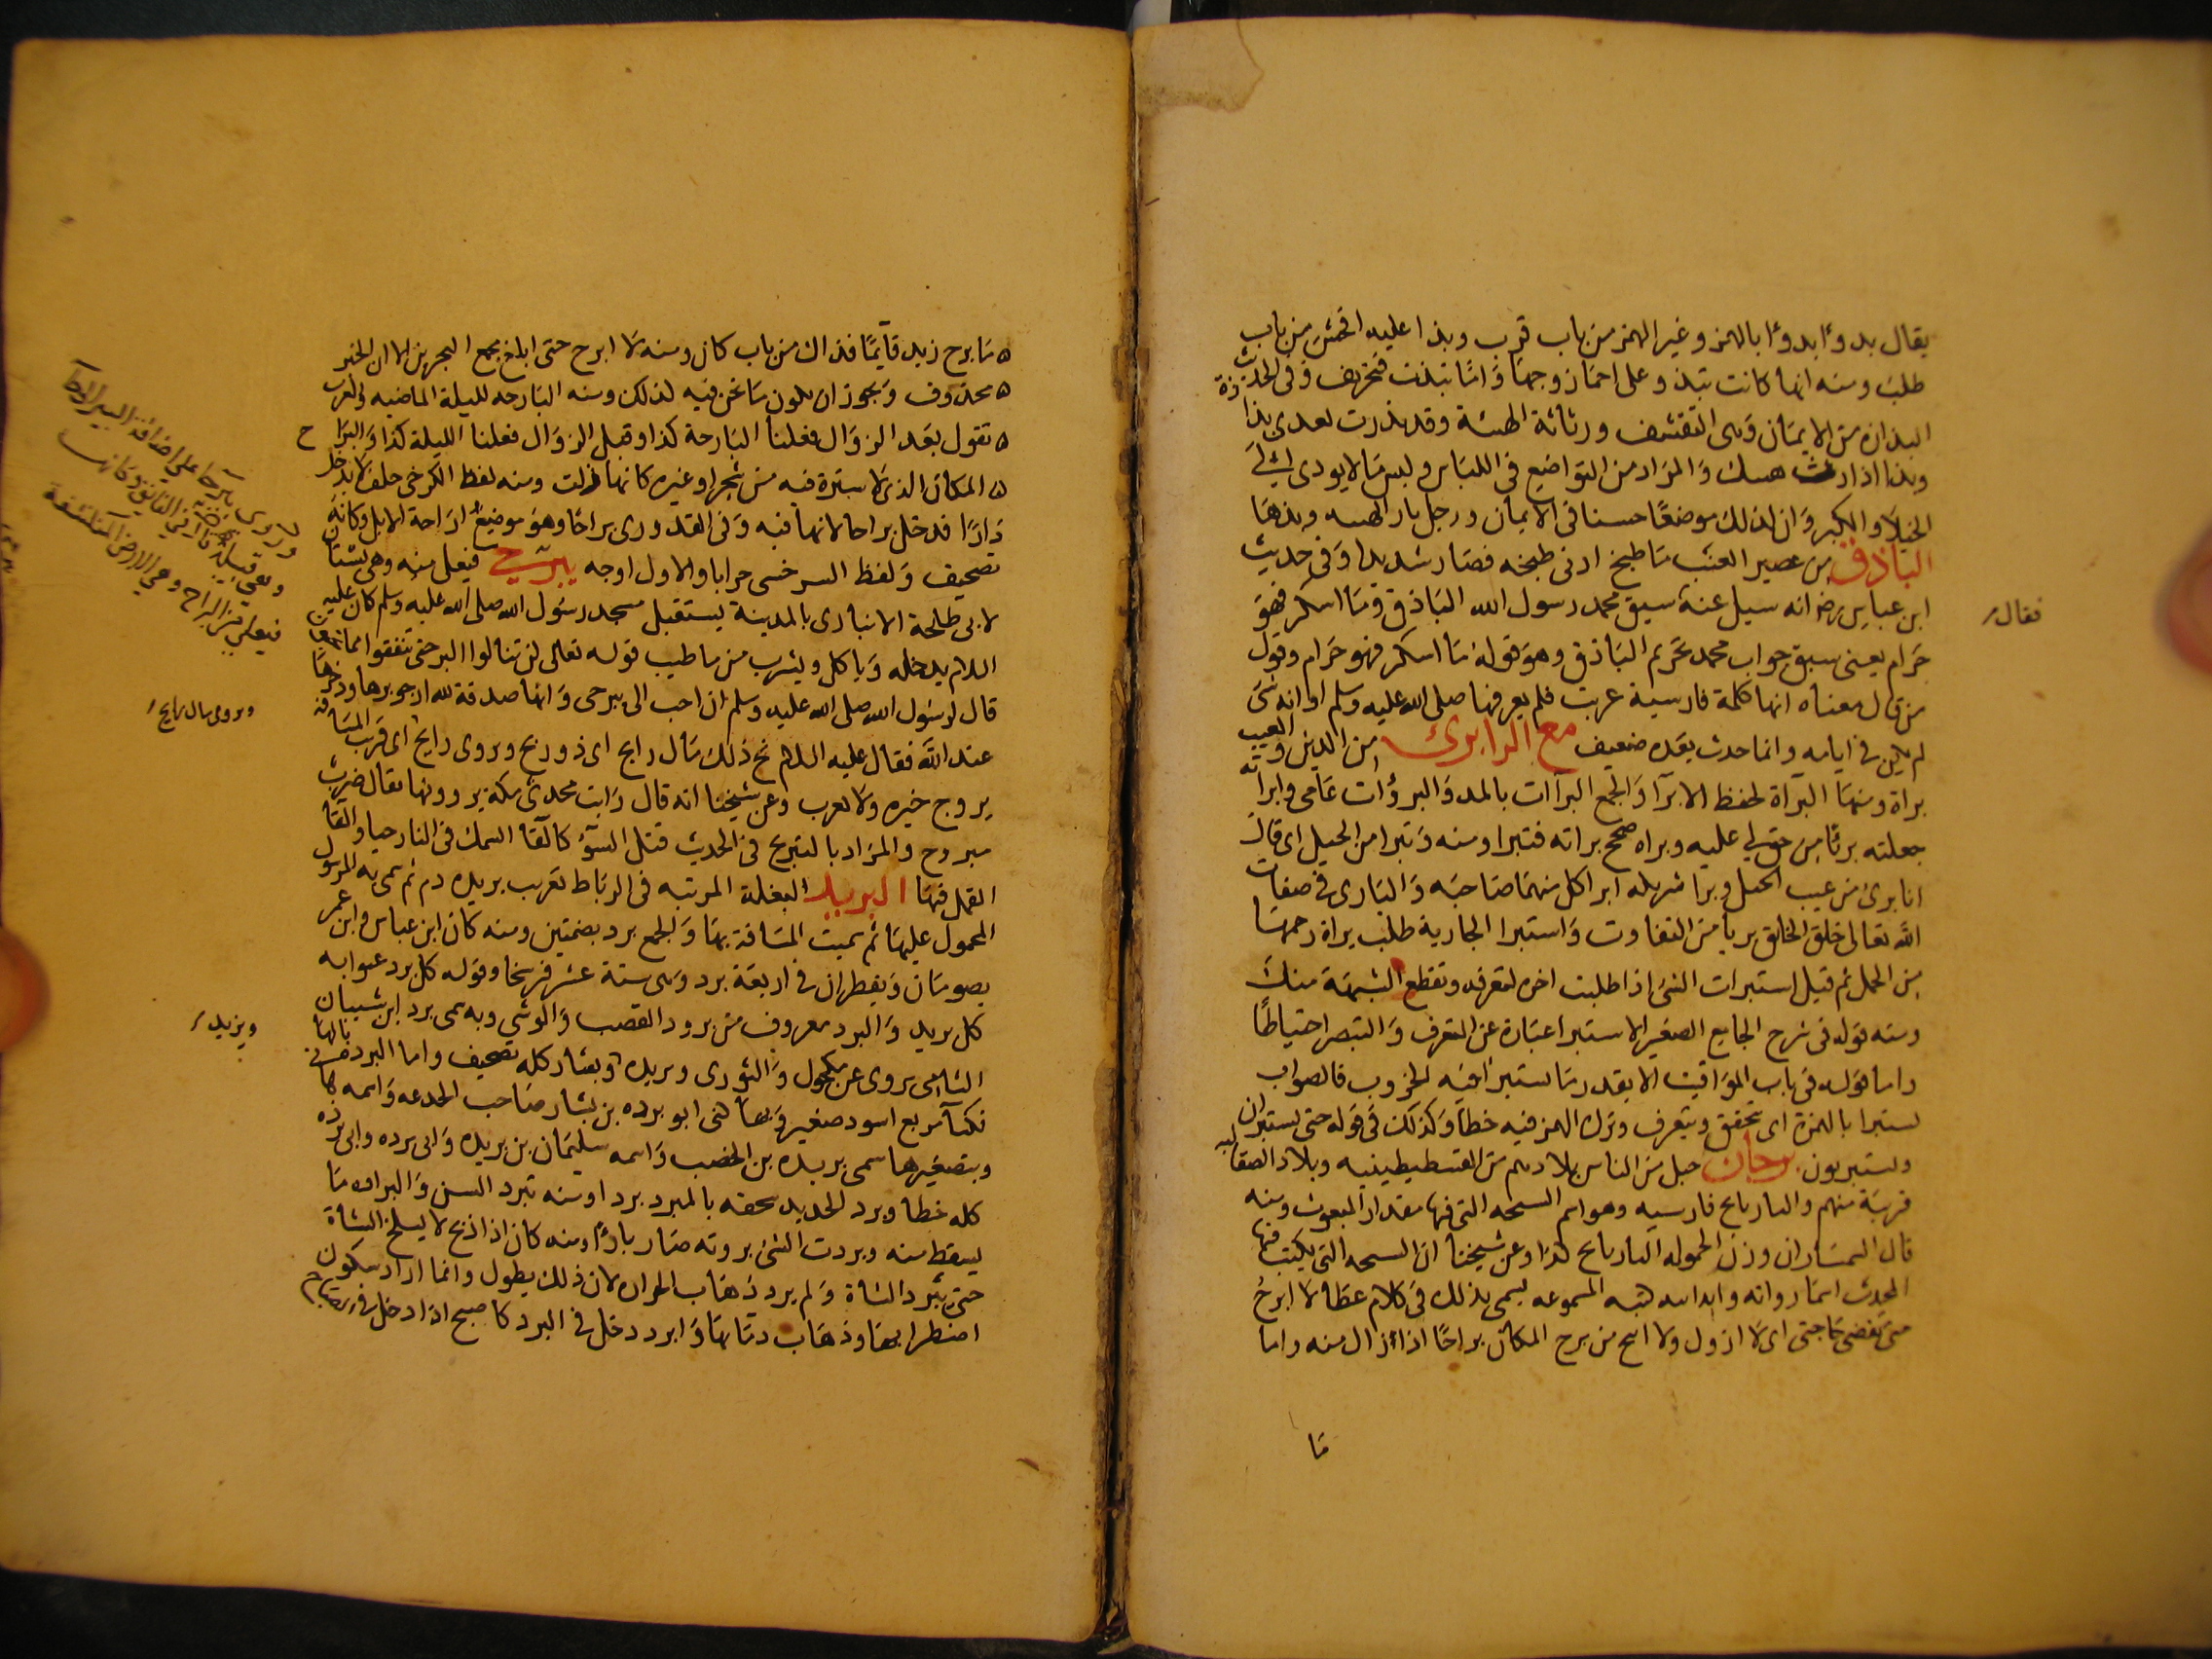 يقال بدوأ بدوأ بالهمز وغير الهمز من باب قرب وبذا عليه افحش من باب
طلب ومنه انها كانت تبذو على احماز وجها وامّا تبذت فتحريف وفى الحديث
البذاذة من الايمان وهى التقشف ورثاثة الهيئة وقد بذذت بعدى بذاذة
وبذذا اذا رثت هيئتك والمراد من التواضع فى اللباس ولبس ما لا يودى الى
الخيلا والكبر وان لذلك موضعًا حسنا فى الايمان ورجل باذ الهيئه وبذها
الباذق من عصير العنب ما طبخ ادنى طبخه فصار شديدا وفى حديث
ابن عباس رضه انه سيل عنه سبق محمد رسول الله الباذق وما اسكر فهو
حرام يعنى سبق جواب محمد تحريم الباذق وهو قوله ما اسكر فهو حرام وقول
من قال معناه انها كلمة فارسية عربت فلم يعرفها صلى الله عليه وسلم او انه شى
لم يكن فى ايامه وانما حدث بعده ضعيف مع الرا برئ من الدين والعيب
براة ومنها البرآة لخط الابرآ والجمع البرآات بالمد والبرؤات عامى وابراته
جعلته بريًا من حق لي عليه وبراه صحح براته فتبرا ومنه وتبرا من الحبل اى قال
انا برئ من عيب الحبل وبرا شريكه ابرا كل منهما صاحبه والبارى فى صفات
الله تعالى خلق الخلق بريا من التفاوت واستبرا الجارية طلب براة رحمها
من الحمل ثم قيل استبرات الشئ اذا طلبت اخره لتعرفه وتقطع الشبهة منك
ومنه قوله فى شرح الجامع الصغير الاستبرا عبارة عن التعرف والتبصر احتياطًا
واما قوله فى باب المواقيت الا بقدر ما يستبرا فيه الغروب فالصواب
يستبرا بالهمزة اى يتحقق ويتعرف وترك الهمز فيه خطا وكذلك فى قوله حتى يستبران
ويستبريون برجان جبل من الناس بلادهم من القسطيطينيه وبلاد الصقالبه
قريبة منهم والبارنامج فارسيه وهو اسم النسخه التى فيها مقدار المبعوث ومنه
قال السمسار ان وزن الحموله البارنامج كذا وعن شيخنا ان النسخه التى يكتب فيها
المحدث اسما رواته واسانيد كتبه المسموعه يسمى بذلك فى كلام عطا لا ابرح
حتى تقضى حاجتى اى لا ازول ولا اتنح من برح المكان براحًا اذا زال منه واما
ما
فقال
ما برح زيد قايمًا فذاك من باب كان ومنه لا ابرح حتى ابلغ مجمع البحرين الا ان الخبر
محذوف ويجوز ان يكون ما نحن فيه لذلك ومنه البارحه لليلة الماضيه والعرب
تقول بعد الزوال فعلنا البارحة كذا وقبل الزوال فعلنا الليلة كذا والبراح
المكان الذى لا سترة فيه من شجر او غيره كانها زلت ومنه لفظ الكرخى حلف لا يدخل
دارًا فدخل براحا لانها فيه وفى القدورى براحًا وهو موضع اراحة الابل وكانه
تصحيف ولفظ السرخسى خرابا والاول اوجه بيرحى فيعلى منه وهى بستان
لابى طلحة الانبارى بالمدينة يستقبل مسجد رسول الله صلى الله عليه وسلم كان عليه
السلام يدخله وياكل ويشرب من ما طيب قوله تعالى لن تنالوا البر حتى تنفقوا مما تحبون
قال لرسول الله صلى الله عليه وسلم ان احب الى بيرحى وانها صدقة لله ارجو برها وذخرها
عند الله فقال عليه السلام بخ ذلك مال رابح اى ذو ربح ويروى رايح اى قريب المسافه
يروح خيره ولا يعزب وعن شيخنا انه قال رايت محدثى مكة يروونها يقال ضرب
مبرح والمراد بالتبريح فى الحديث قتل السوء كالقا السمك فى النار حيا والقا
القمل فيها البريد البغلة المرتبه فى الرباط تعريب بريده دم ثم سمى به الرسول
المحمول عليها ثم سميت المسافة بها والجمع برد بضمتين ومنه كان ابن عباس وابن عمر
يصومان ويفطران فى اربعة برد وهى ستة عشر فرسخا وقوله كل برد عنوا به
كل بريد والبرد معروف من برود القصب والوشى وبه سمى برد ابن شيبان
الشامى يروى عن مكحول والثورى وبريده وبشار كله تصحيف واما البرده بالها
فكسآ مربع اسود صغير وبها كنى ابو برده بن بشار صاحب الجدعه واسمه هانى
وبتصغيرها سمى بريده بن الخصب واسمه سليمان بن بريده وابى برده وابى برزه
كله خطا وبرد الحديد سحقه بالمبرد بردا ومنه تبرد السن والبراده ما
يسقط منه وبردت الشئ بروته صار باردًا ومنه كان اذا ذبح لا يسلخ الشاة
حتى تبرد الشاة ولم يرد ذهاب الحراره لان ذلك يطول وانما اراد سكون
اضطرابها وذهاب دمايها وابرد دخل فى البرد كاصبح اذا دخل فى الصباح
ويروى مال رايح
ويزيد